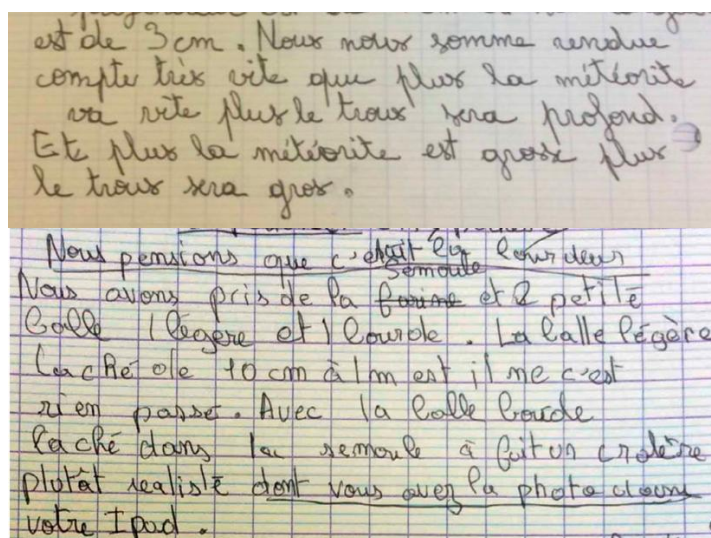 est de 3 cm. Nous nous somme rendue
compte très vite que plus la météorite
va vite plus le trous sera profond.
Et plus la météorite est grosse plus
le trous sera gros.
Nous pensions que c'etait la lourdeur
semoule
Nous avons pris de la farine et 2 petite
balle 1 légère et 1 lourde. La balle légère
laché de 10 cm à 1m est il ne c'est
rien passé. Avec la balle lourde
laché dans la semoule à fait un cratère
plutôt realiste dont vous avez la photo dans
votre Ipad.